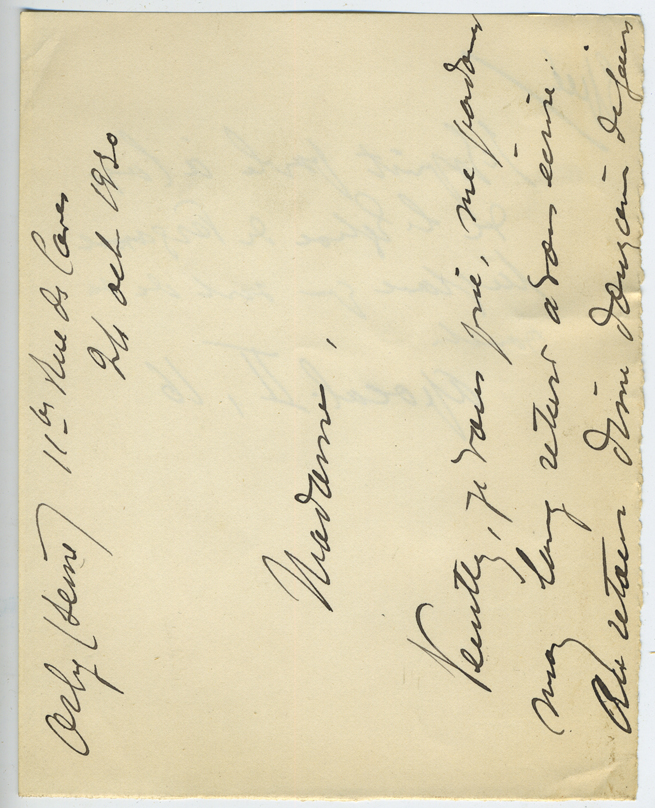 Orly (Seine) 11 bis Rue des Caves
24 oct 1930
Madame,
Veuillez, je vous prie, me pardonner
mon long retard à vous écrire.
Au retour d'une de jours